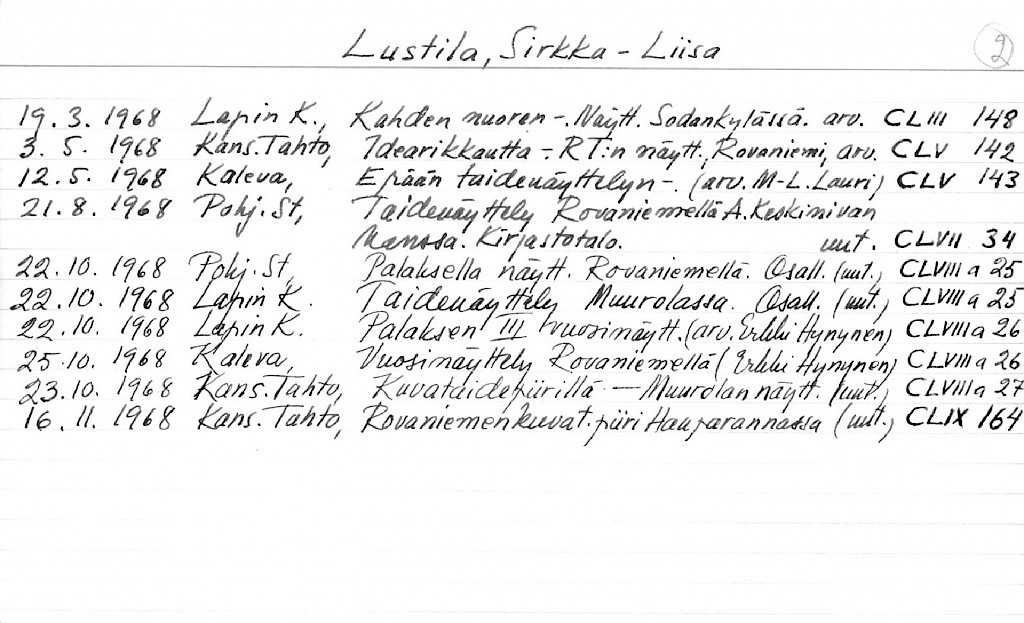 Lustila, Sirkka-Liisa 2
19. 3. 1968 Lapin K., Kahden nuoren -. Näytt. Sodankylässä. arv. CLIII 148
3. 5. 1968 Kans. Tahto, Idearikkautta - RT:n näytt., Rovaniemi, arv. CLV 142
12. 5. 1968 Kaleva, Erään taidenäyttelyn -. (arv. M-L. Lauri) CLV 143
21. 8. 1968 Pohj. St, Taidenäyttely Rovaniemellä A. Keskinivan
kanssa. Kirjastotalo. uut. CLVII 34
22. 10. 1968 Pohj. St, Palaksella näytt. Rovaniemellä. Osall. (uut.) CLVIII a 25
22. 10. 1968 Lapin K. Taidenäyttely Muurolassa. Osall. (uut.) CLVIII a 25
22. 10. 1968 Lapin K. Palaksen III vuosinäytt. (arv. Erkki Hynynen) CLVIII a 26
25. 10. 1968 Kaleva, Vuosinäyttely Rovaniemellä (Erkki Hynynen) CLVIII a 26
23. 10. 1968 Kans. Tahto, Kuvataidepiirillä — Muurolan näytt. (uut.) CLVIII a 27
16. 11. 1968 Kans. Tahto, Rovaniemen kuvat. piiri Haaparannassa (uut.) CLIX 164